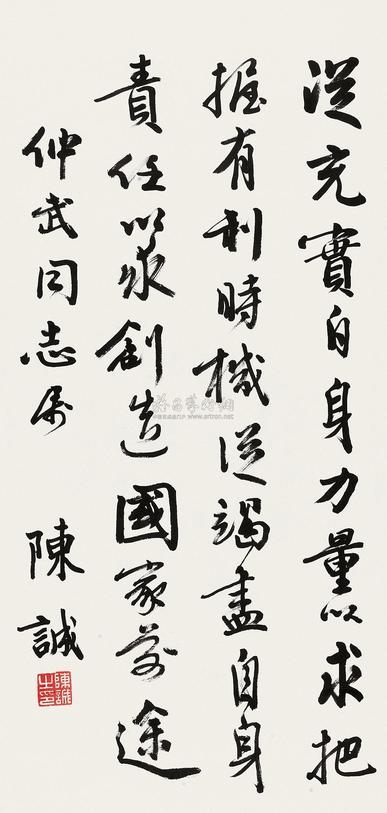 從充實自身力量以求把
握有利時機從竭盡自身
責任以求創造國家前途
仲武同志属
陳誠
陳誠之印
www.artron.net